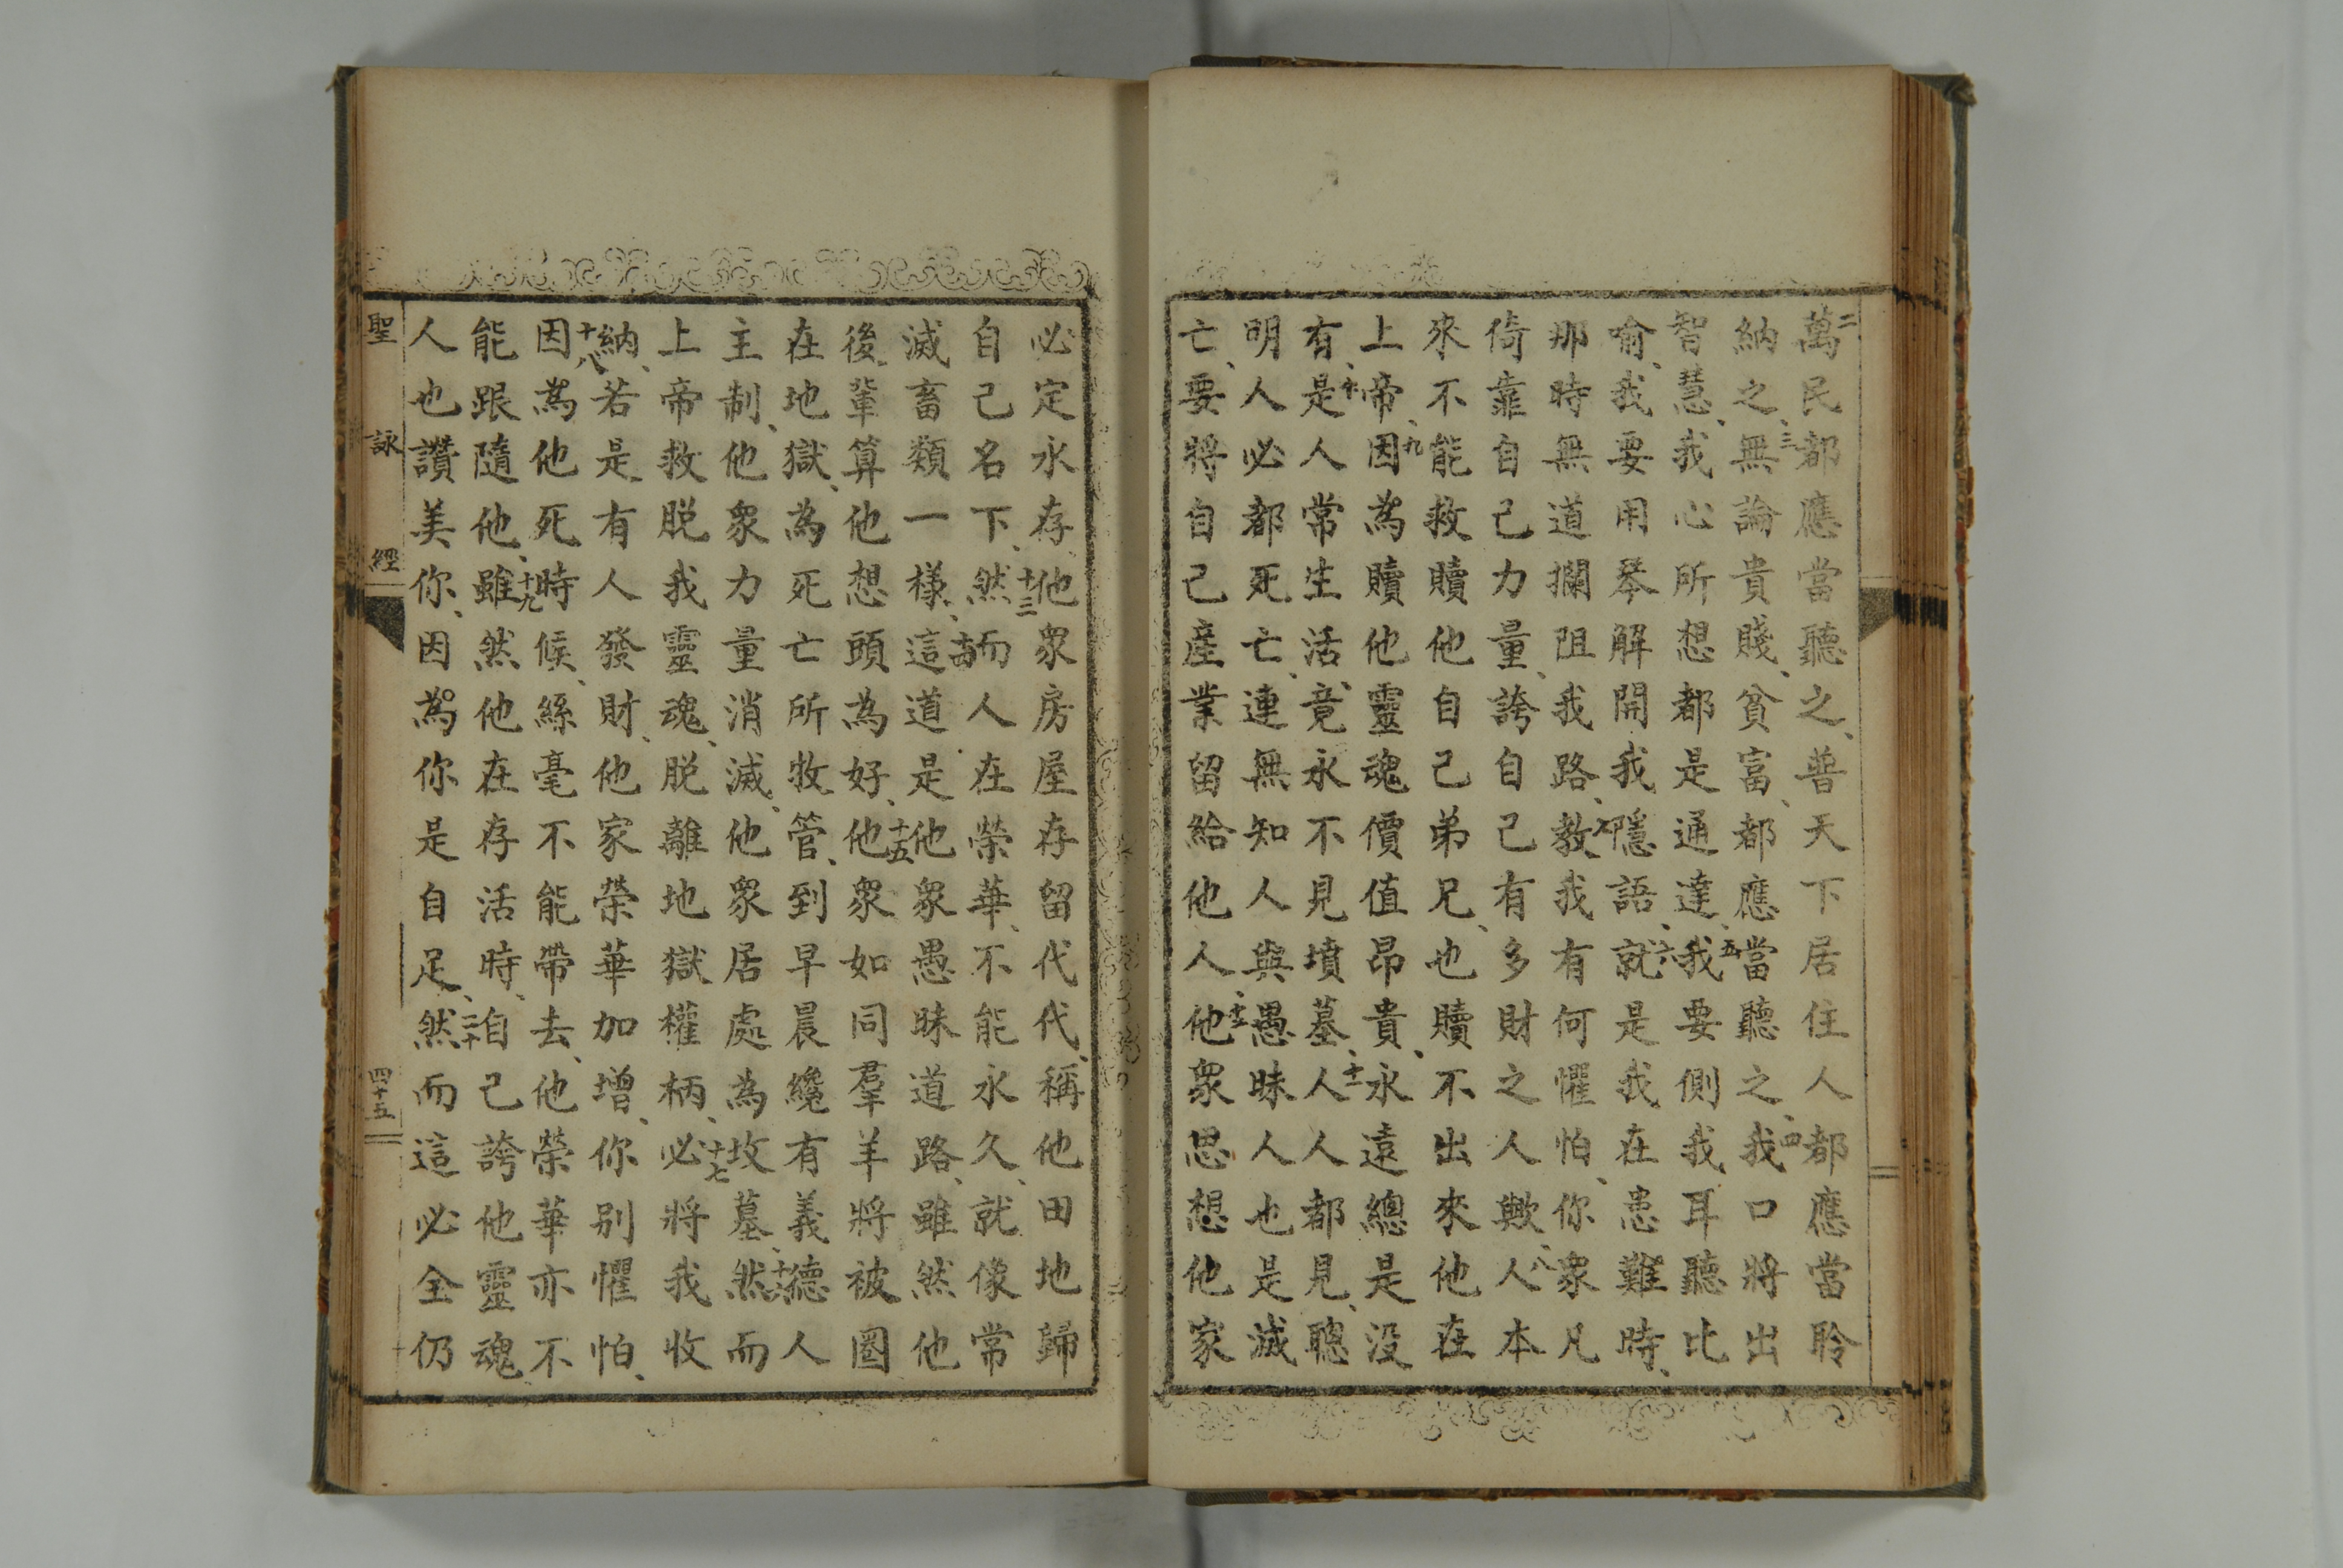 二萬民都應當聽之、普天下居住人都應當聆
納之、三無論貴賤、貧富、都應當聽之、四我口將出
智慧、我心所想都是通達、五我要側我耳聽比
喻、我要用琴解開我隱語、六就是我在患難時、
那時無道攔阻我路、七教我有何懼怕、你衆凡
倚靠自己力量、誇自己有多財之人歟、八人本
來不能救贖他自己弟兄、也贖不出來他在
上帝、九因為贖他靈魂價值昂貴、永遠總是没
有、十是人常生活、竟永不見墳墓、十一人人都見、聰
明人必都死亡、連無知人與愚昧人也是滅
亡、要將自己産業留給他人、十二他衆思想他家
必定永存、他衆房屋存留代代、稱他田地歸
自己名下、十三然而人在榮華、不能永久、就像常
滅畜類一樣、十四這道是他衆愚昧道路、雖然他
後輩算他想頭為好、十五他衆如同羣羊將被圈
在地獄、為死亡所牧管、到早晨纔有義德人
主制、他衆力量消滅、他衆居處為坟墓、十六然而
上帝救脱我靈魂、脱離地獄權柄、十七必將我收
納、若是有人發財、他家榮華加增、你别懼怕、
十八因為他死時候、絲毫不能帶去、他榮華亦不
能跟隨他、十九雖然他在存活時、自己誇他靈魂、
人也讚美你、因為你是自足、二十然而這必全仍
聖詠經
四十五